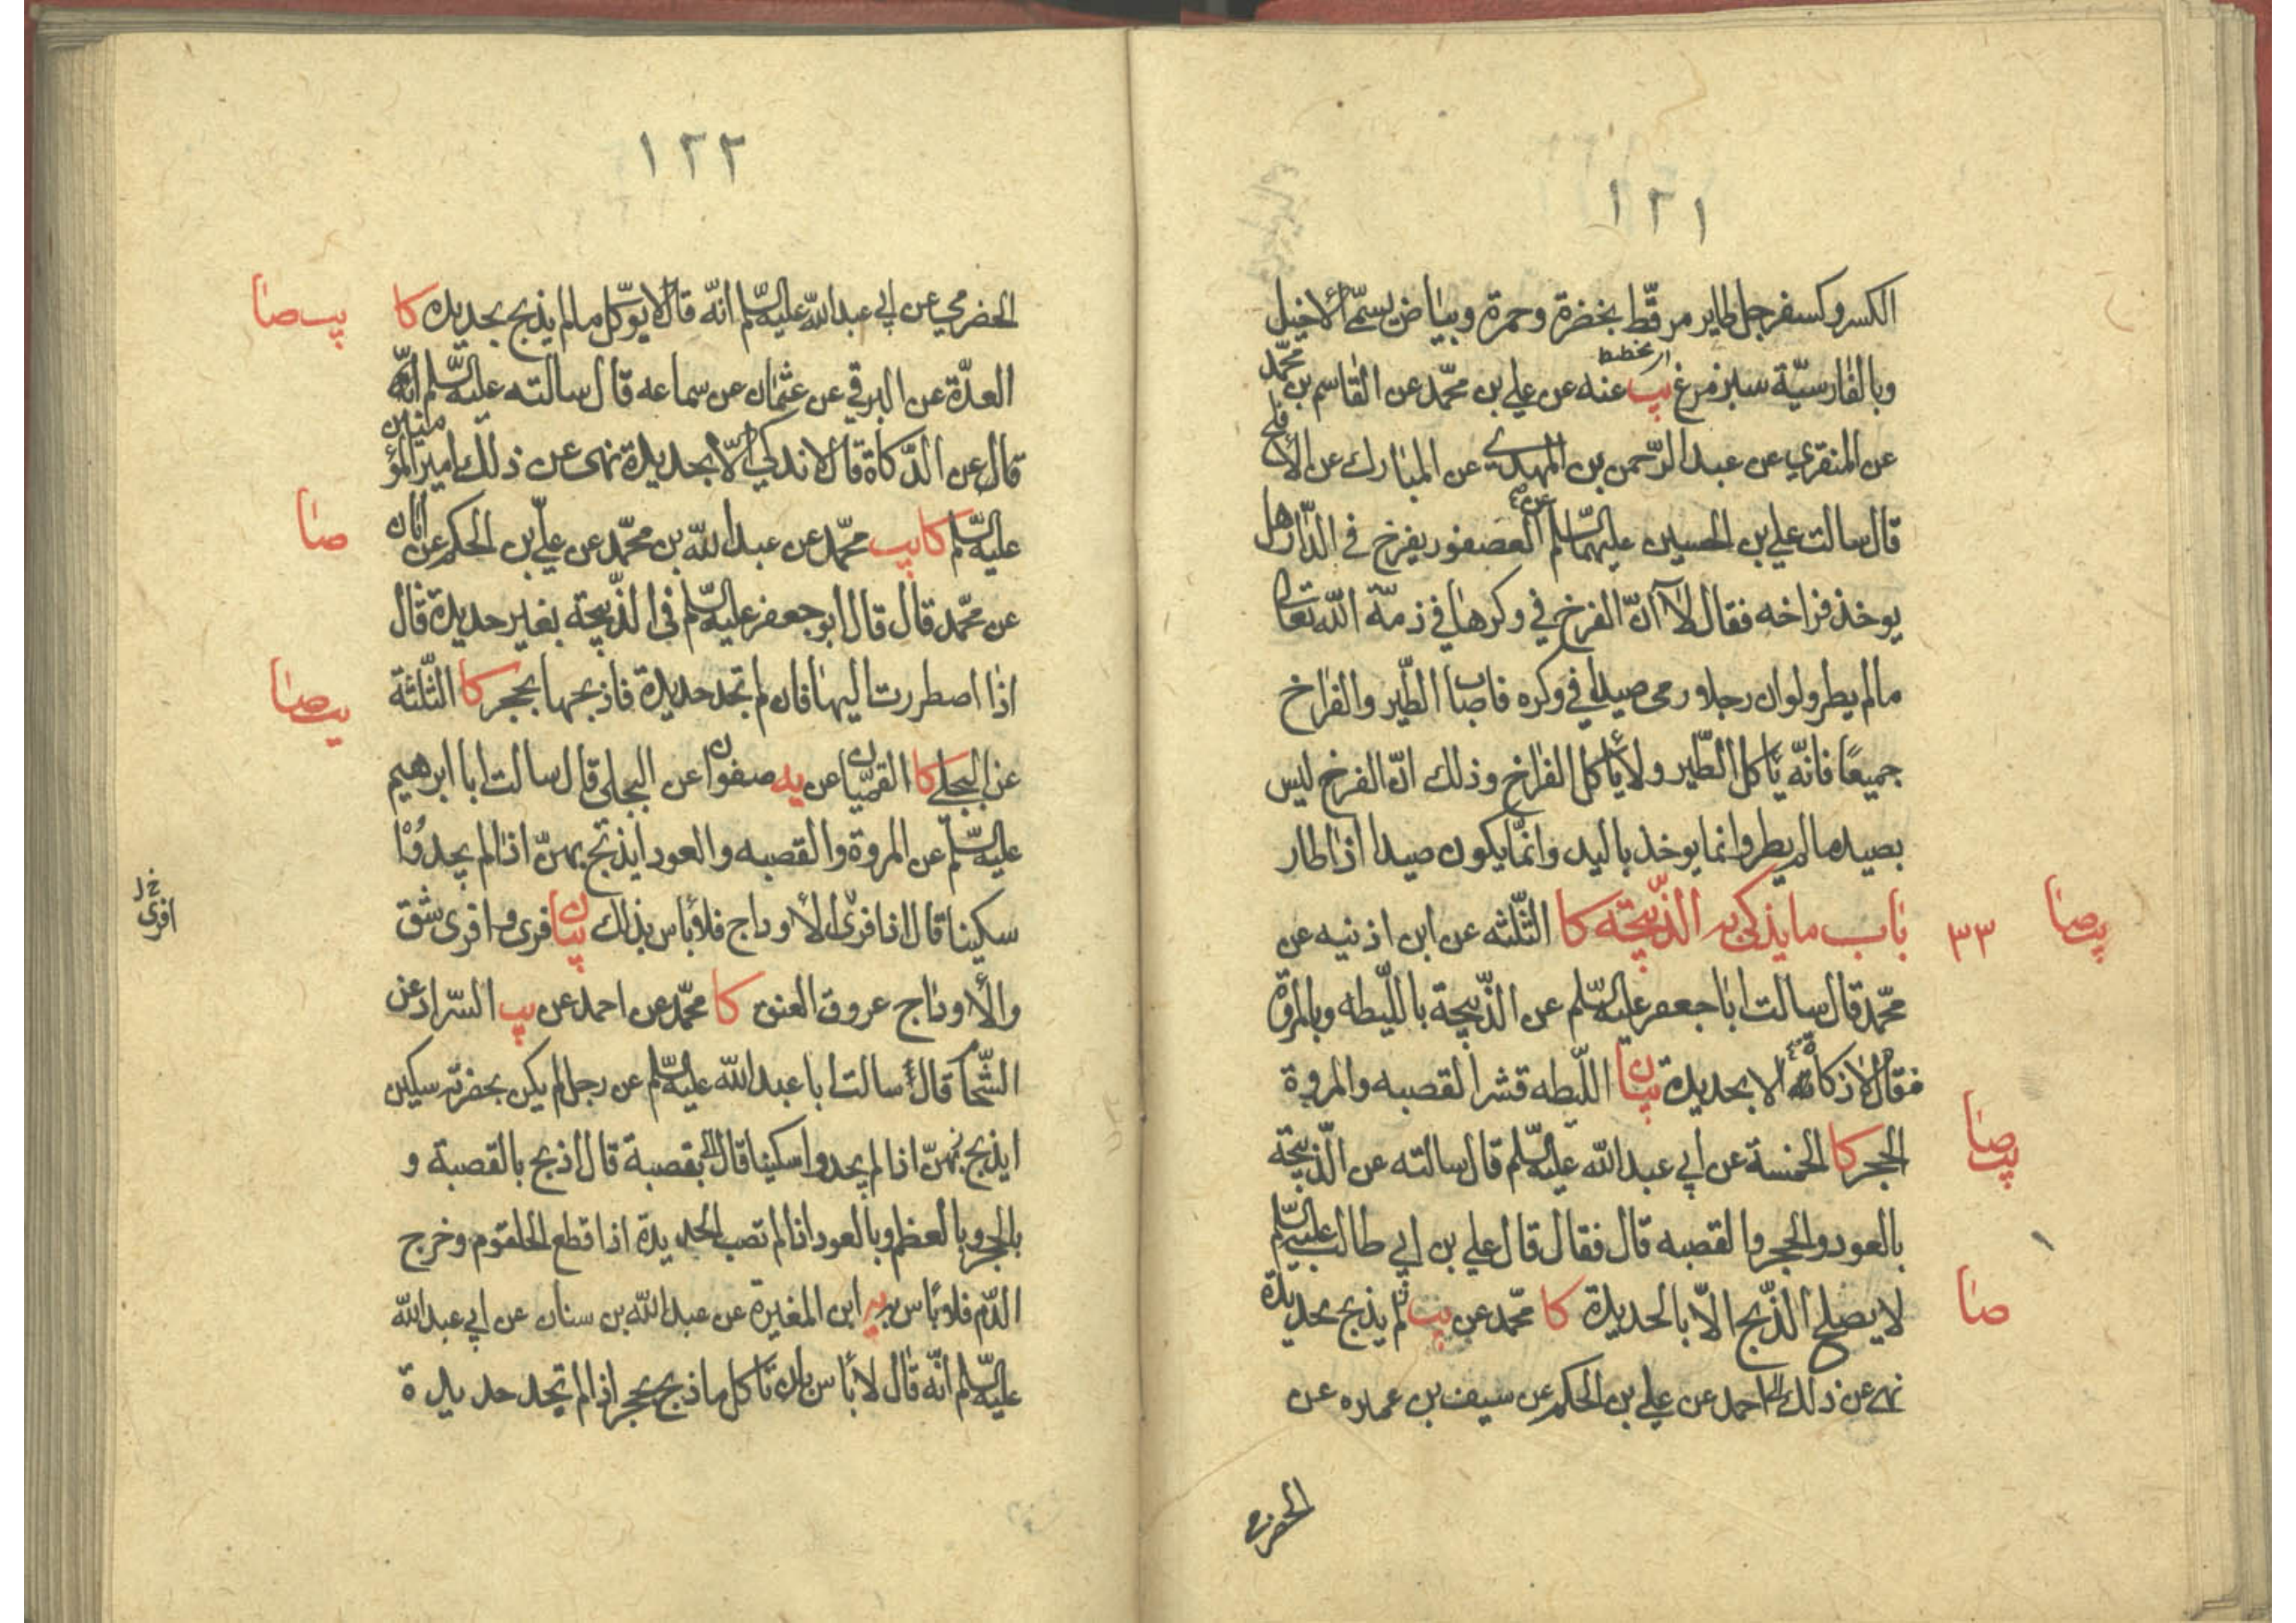 ١٢١
الكسر وكسفرجل طاير مرقّط بخضرة وحمرة وبياض يسمّى الأخيل
وبالفارسيّة سبزمرغ يب عنه عن علي بن محمّد عن القاسم بن محمّد
عن المنقري عن عبد الرّحمن بن المهدي عن المبارك عن الأفلح
قال سالت علي بن الحسين عليهما السّلم عن العصفور يفرخ في الدّار هل
يوخذ فراخه فقال لا انّ الفرخ في وكرها في ذمّة اللّه تعالى
مالم يطر ولو ان رجلا رمى صيدا في وكره فاصاب الطّير والفراخ
جميعًا فانّه يأكل الطّير ولا يأكل الفراخ وذلك انّ الفرخ ليس
بصيد مالم يطر وانما يوخذ باليد وانّما يكون صيدا اذا طار
يب صا
٣٣ باب ما يذكى به الذّبيحته كا الثّلثه عن ابن اذنيه عن
محمّد قال سالت ابا جعفر عليه السّلم عن الذّبيحة باللّيطه وبالمروة
فقال لا ذكاة الا بحديدة بيان اللّيطه قشر القصبه والمروة
يب صا
الحجر كا الخمسة عن ابي عبد اللّه عليه السّلم قال سالته عن الذّبيحة
بالعود والحجر والقصبه قال فقال قال علي بن ابي طالب عليه السّلم
صا
لا يصلح الذّبح الّا بالحديدة كا محمّد عن يب ثم يذبح بحديدة
نهى عن ذلك احمد عن علي بن الحكم عن سيف بن عميره عن
١٢٢
الحضرمي عن ابي عبد اللّه عليه السّلم انّه قال لا يوكل مالم يذبح بحديده كا
يب صا
العدّة عن البرقي عن عثمان عن سماعه قال سالته عليه السّلم انّه
قال عن الذّكاة قال لا تذكي الّا بحديدة نهى عن ذلك امير المؤمنين
عليه السّلم كا يب محمّد عن عبد اللّه بن محمّد عن عليّ بن الحكم عن ابان
صا
عن محمّد قال قال ابو جعفر عليه السّلم في الذّبيحته بغير حديدة قال
اذا اضطررت اليها فان لم تجد حديدة فاذبحها بحجر كا الثّلثة
يب صا
عن البجلي كا القميّان عن يه صفوان عن البجلي قال سالت ابا ابرهيم
عليه السّلم عن المروة والقصبه والعود ايذبح بهنّ اذا لم يجدوا
سكينا قال اذا فرى الأوداج فلا بأس بذلك بيان فرى وافرى شق
افرى خ ل
والأوداج عروق العنق كا محمّد عن احمد عن يب السّراد عن
الشّحّام قال سالت ابا عبد اللّه عليه السّلم عن رجل لم يكن بحضرته سكين
ايذبح بهنّ اذا لم يجدوا سكينا قال بقصبة قال اذبح بالقصبة و
بالحجر وبالعظم وبالعود اذا لم تصب الحديدة اذا قطع الحلقوم وخرج
الدّم فلا بأس به يه ابن المغيرة عن عبد اللّه بن سنان عن ابي عبد اللّه
عليه السّلم انّه قال لا بأس بان تأكل ما ذبح بحجر اذا لم تجد حديدة